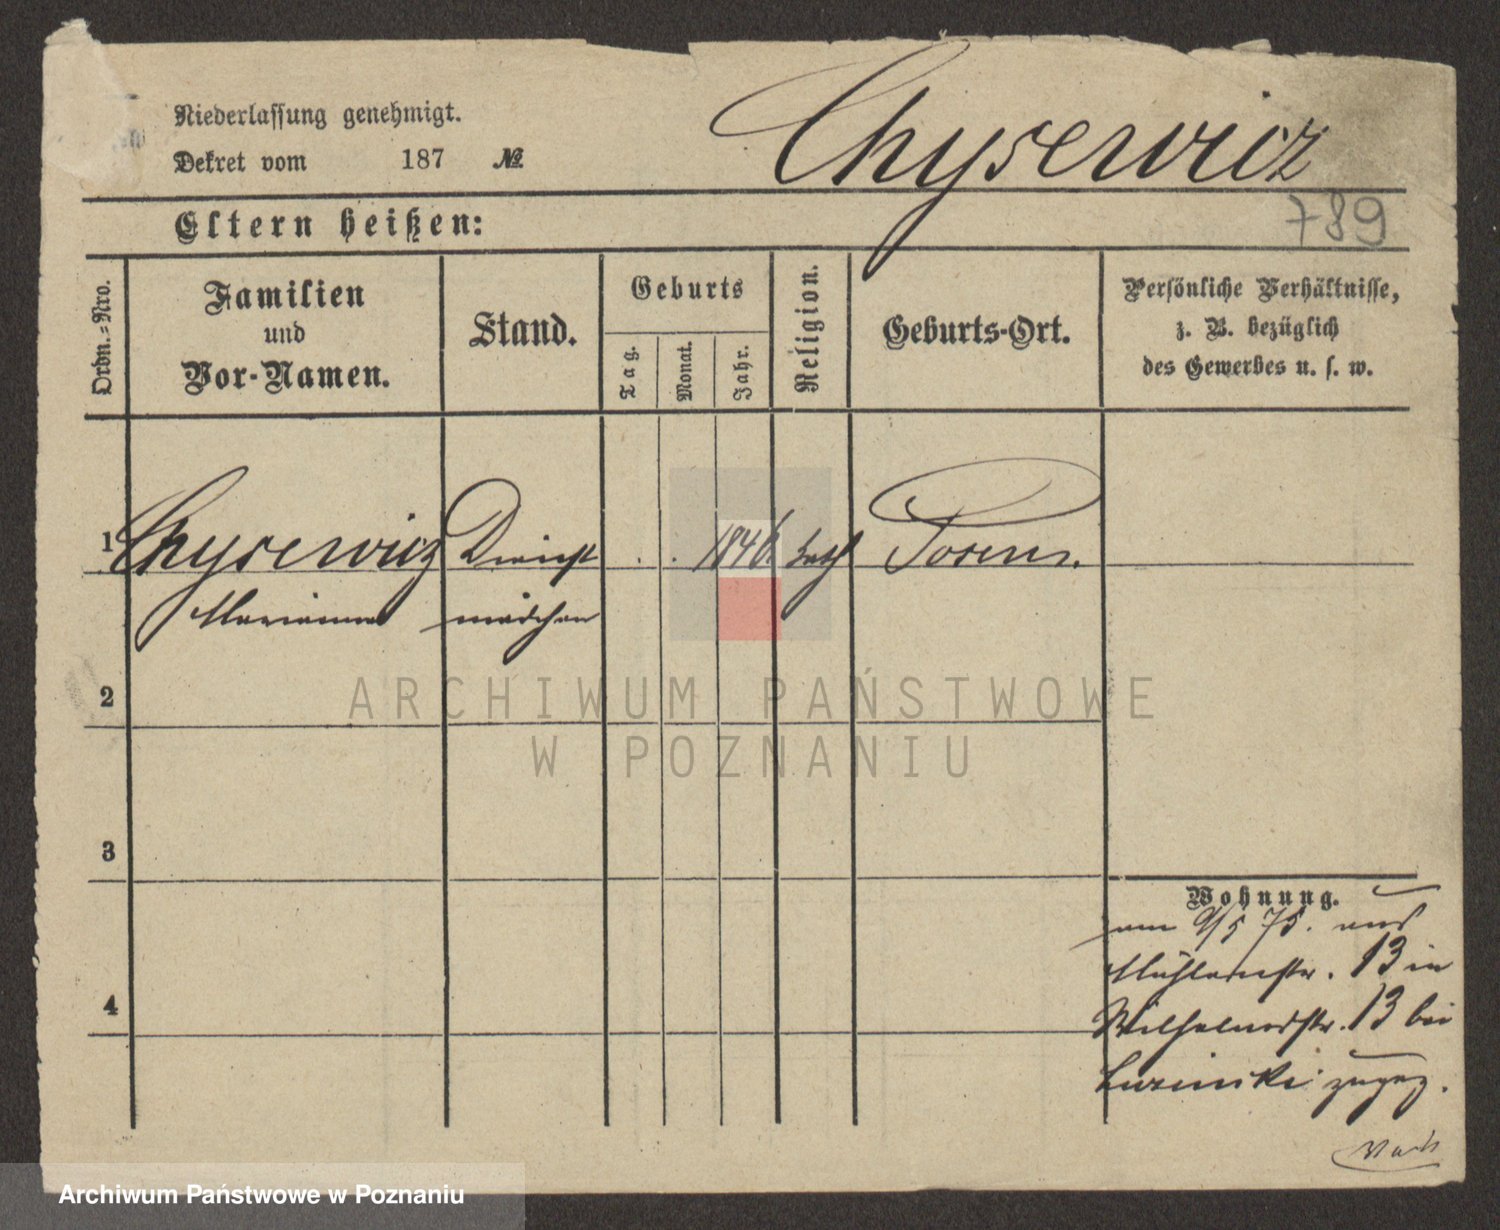 Niederlassung genehmigt.
Dekret vom 187 №
Chysewicz
789
Eltern heißen:
Ordn.-Nro.
Familien
und
Vor-Namen.
Stand.
Geburts
Tag.
Monat.
Jahr.
Religion.
Geburts-Ort.
Persönliche Verhältnisse,
z. B. bezüglich
des Gewerbes u. s. w.
1 Chysewicz Dienst . . 1846 kath Posen.
Marianna mädchen
2
ARCHIWUM PAŃSTWOWE
W POZNANIU
3
Wohnung.
am 9/5 75. aus
Mühlenstr. 13 in
4
Wilhelmsstr. 13 bei
zugez.
Archiwum Państwowe w Poznaniu